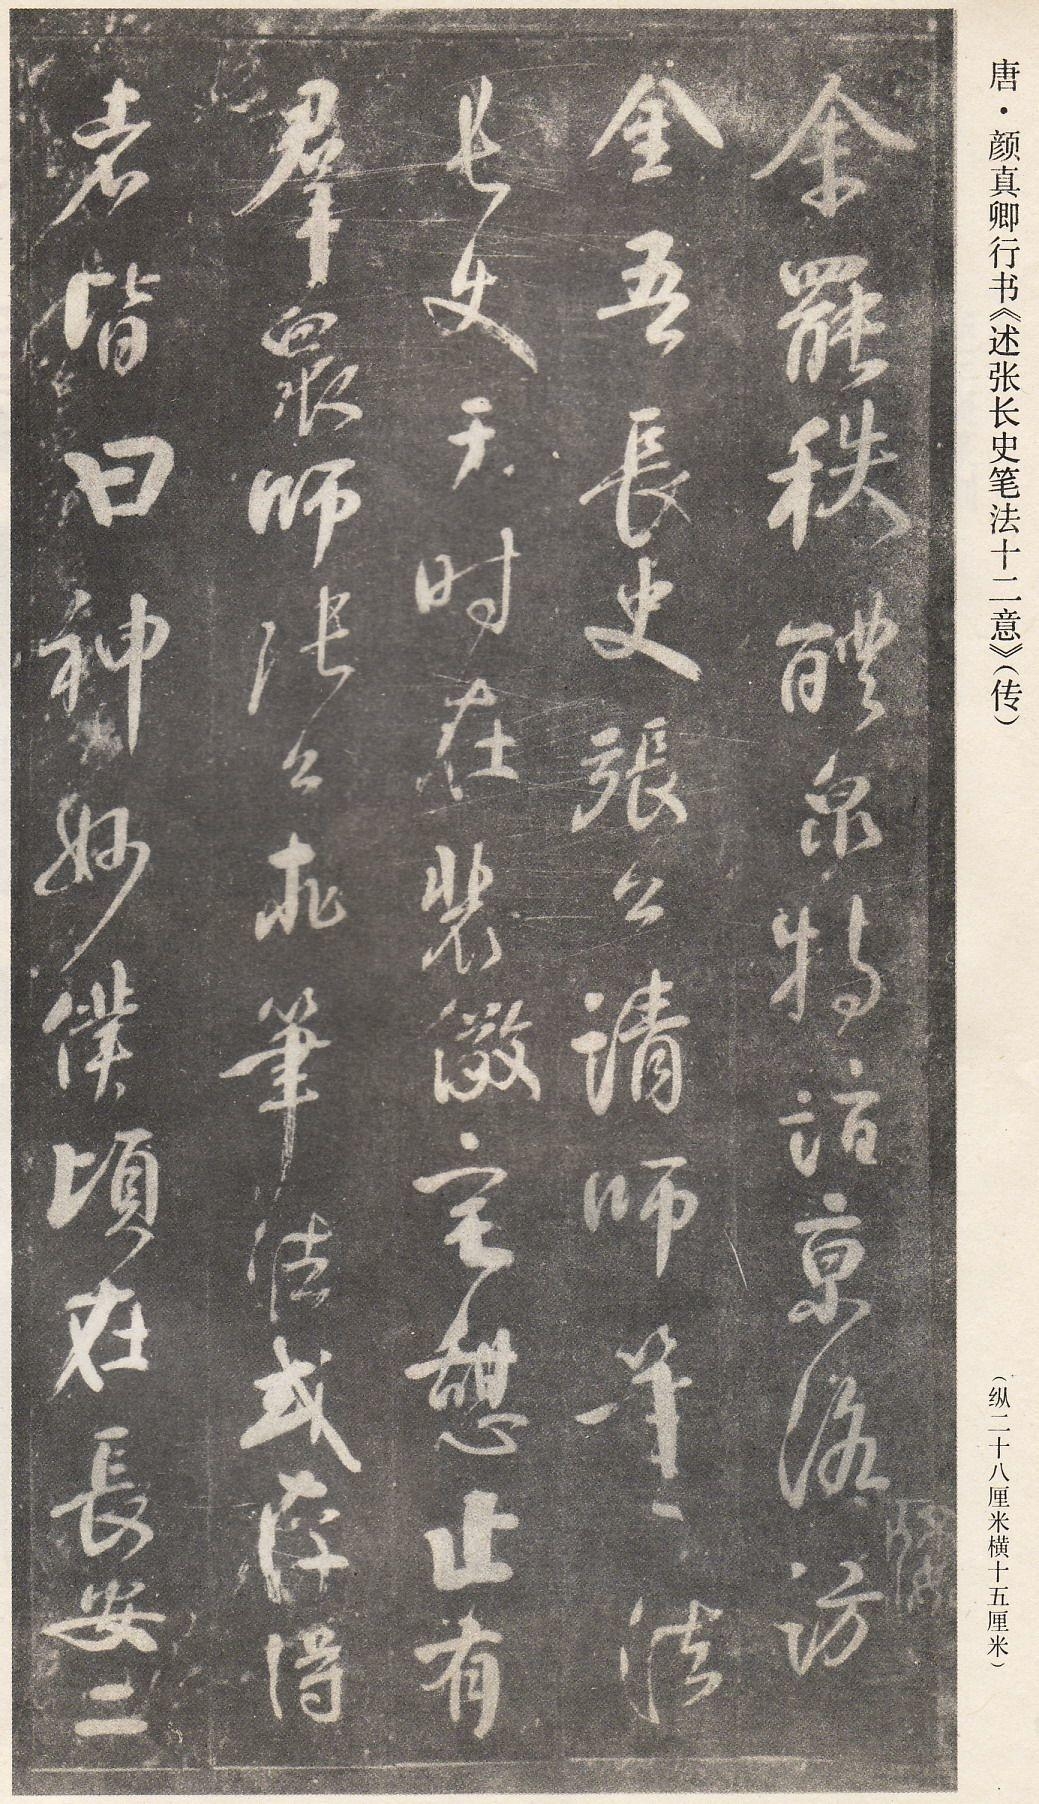 唐·颜真卿行书《述张长史笔法十二意》(传)
(纵二十八厘米横十五厘米)
余罷秩醴泉特詣京洛訪
金吾長史張公請師筆法
長史于时在裴儆宅憩止有
羣衆师張公求筆法或存得
者皆曰神妙僕頃在長安二